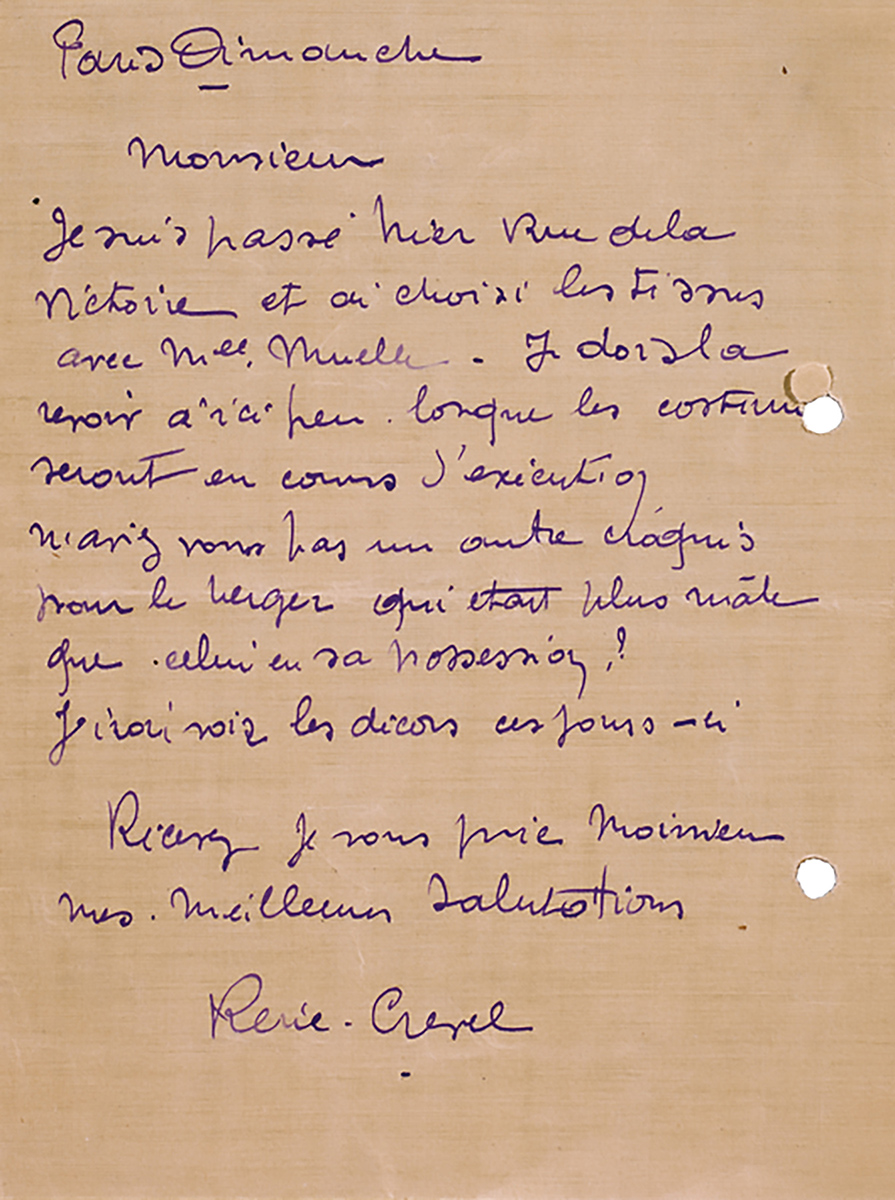 Paris Dimanche
Monsieur
Je suis passé hier Rue de la
Victoire et ai choisi les tissus
avec Melle. Muelle - Je dois la
revoir d'ici peu. lorsque les costum
seront en cours d'exécution
n'aviez vous pas un autre croquis
pour le berger qui etait plus mâle
que celui en sa possession,?
J'irai voir les décors ces jours-ci
Recevez je vous prie Monsieur
mes. meilleures salutations
René-Crevel